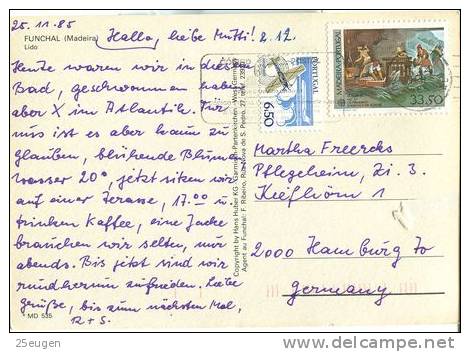 25.11.85
FUNCHAL (Madeira)
Lido
Hallo, liebe Mutti! 2.12.
Heute waren wir in diesem
Bad, geschwommen habe
aber X im Atlantik. Für
uns ist es aber kaum zu
glauben, blühende Blumen
Wasser 20°, jetzt sitzen wir
auf einer Terasse, 17.00 u
trinken Kaffee, eine Jacke
brauchen wir selten, nur
abends. Bis jetzt sind wir
rundherum zufrieden. Liebe
Grüße, bis zum nächsten Mal,
R + S.
MD 535
Copyright by Hans Huber KG - Garmisch-Partenkirchen - West Germany
Agent au Funchal: F. Ribeiro, Rua Nova de S. Pedro, 27, Telef.
PORTUGAL
6.50
MADEIRA-PORTUGAL
33.50
Martha Freercks
Pflegeheim, Zi 3.
Kiefhörn 1
2000 Hamburg 70
Germany
25eugen
delcampe.net